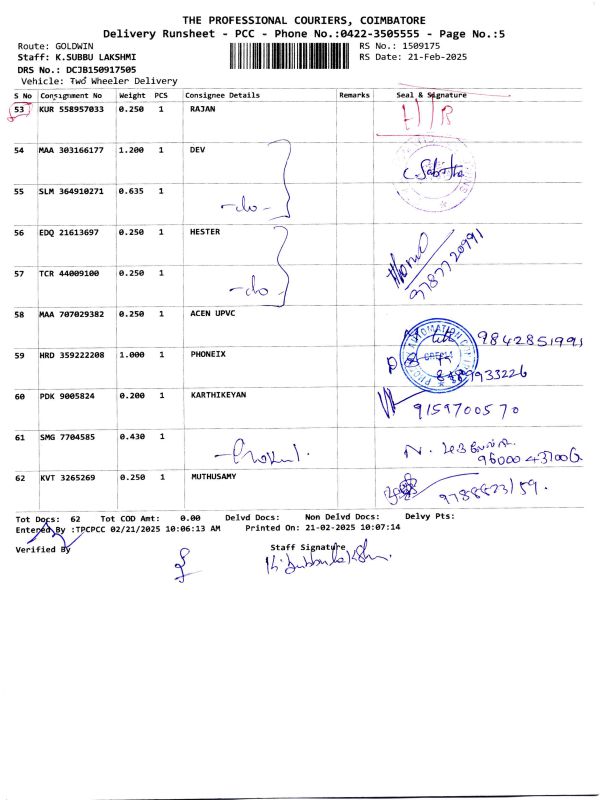 THE PROFESSIONAL COURIERS, COIMBATORE
Delivery Runsheet - PCC - Phone No.:0422-3505555 - Page No.:5
Route: GOLDWIN
RS No.: 1509175
Staff: K.SUBBU LAKSHMI
RS Date: 21-Feb-2025
DRS No.: DCJB150917505
Vehicle: Two Wheeler Delivery
S No Consignment No Weight PCS Consignee Details Remarks Seal & Signature
53 KUR 558957033 0.250 1 RAJAN
54 MAA 303166177 1.200 1 DEV
C. Sabitha
55 SLM 364910271 0.635 1
-do-
56 EDQ 21613697 0.250 1 HESTER
9787720991
57 TCR 44009100 0.250 1
-do-
58 MAA 707029382 0.250 1 ACEN UPVC
9842851991
59 HRD 359222208 1.000 1 PHONEIX
60 PDK 9005824 0.200 1 KARTHIKEYAN
9159700570
61 SMG 7704585 0.430 1
62 KVT 3265269 0.250 1 MUTHUSAMY
Tot Docs: 62 Tot COD Amt: 0.00 Delvd Docs: Non Delvd Docs: Delvy Pts:
Entered By :TPCPCC 02/21/2025 10:06:13 AM Printed On: 21-02-2025 10:07:14
Verified By
Staff Signature
K. Subbulakshmi